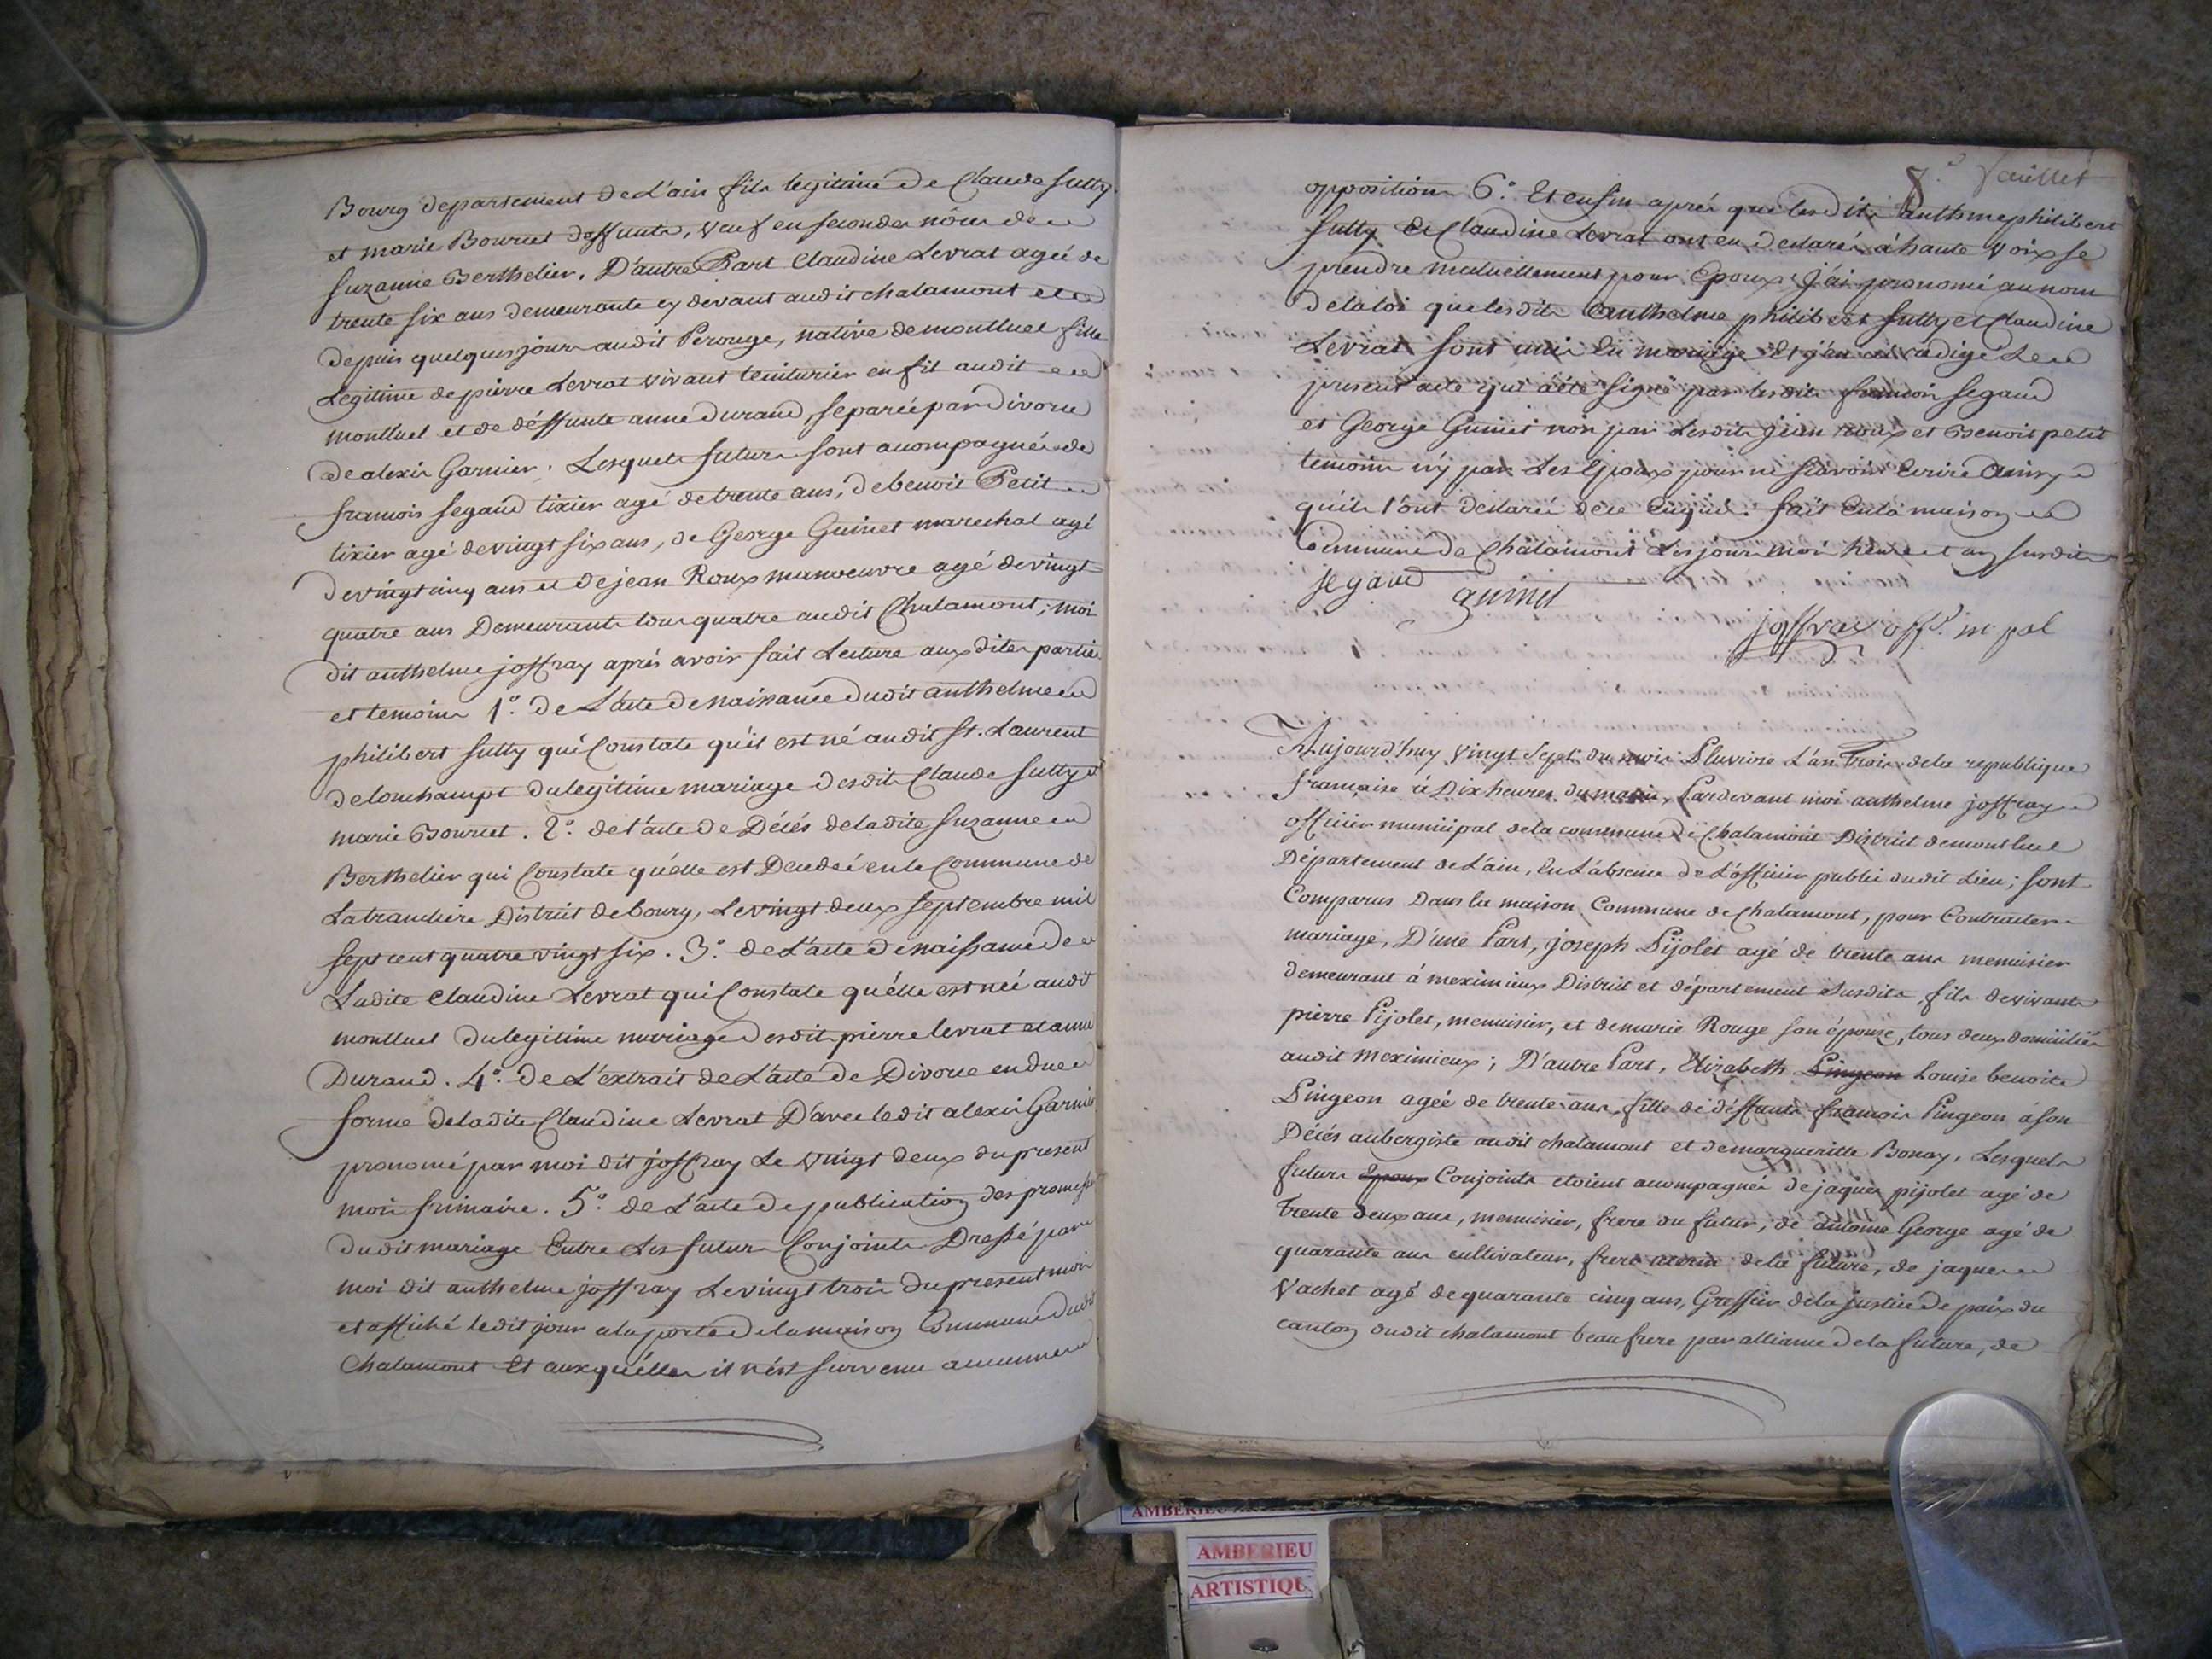 Bourg departement de L'ain fils legitime de Claude sutty
et marie Bourcet deffunts, veuf en secondes nôces de
suzanne Berthelier. D'autre Part Claudine Levrat agée de
trente six ans demeurante cy devant audit chalamont et
depuis quelques jours audit Perouge, native de montluel fille
Legitime de pierre Levrat vivant teinturier en fil audit
montluel et de déffunte anne durand, separée par divorce
de alexis Garnier. Lesquels futurs sont acompagnés de
francois segaud tixier agé de trente ans, de benoit Petit
tixier agé de vingt six ans, de George Guinet marechal agé
de vingt cinq ans et de jean Roux manoeuvre agé de vingt
quatre ans Demeurants tous quatre audit Chalamont; moi
dit anthelme joffray aprés avoir fait Lecture aux dites parties
et temoins 1.° de L'acte de naissance dudit anthelme
philibert sutty qui Constate qu'il est né audit st. Laurent
de lonchampt du legitime mariage desdits Claude sutty et
marie Bourcet. 2.° de l'acte de Décés de ladite suzanne
Berthelier qui Constate qu'elle est Decedée en la Commune de
Latranclière District de bourg, Le vingt deux septembre mil
sept cent quatre vingt six. 3.° de L'acte de naissance de
Ladite Claudine Levrat qui Constate qu'élle est née audit
montluel du legitime mariage desdits pierre levrat et anne
Durand. 4.° de L'extrait de L'acte de Divorce en due
forme de ladite Claudine Levrat D'avec ledit alexis Garnier
prononcé par moi dit joffray Le vingt deux du present
mois frimaire. 5.° de L'acte de publication des promesses
dudit mariage Entre Les futurs Conjoints Dressé par
moi dit anthelme joffray Le vingt trois du present mois
et affiché ledit jour a la porte de la maison Commune dudit
Chalamont Et auxquélles il n'est survenu aucunne
8.e feuillet
opposition 6.° Et enfin aprés que lesdits anthme philibert
sutty Et Claudine Levrat ont eu declarés à haute voix se
prendre mutuellement pour Epoux; j'ai prononcé au nom
de la loi que lesdits anthelme philibert sutty et Claudine
Levrat sont unis En mariage Et j'en ai redigé Le
present acte qui a été signé par lesdits francois segaud
et George Guinet non par Lesdits jean roux et Benoit petit
temoins n'y par Les Epoux pour ne sçavoir Ecrire ainsy
qu'ils l'ont declaré de ce Enquis. fait En la maison
Commune de Chalamont Les jour mois heure et an susdits
segaud guinet
joffray off.r m. pal
Aujourd'huy vingt sept du mois Pluviose L'an Trois de la republique
française à Dix heures du matin, Pardevant moi anthelme joffray
officier municipal de la commune de Chalamont District de montluel
Département de L'ain, En L'absence de L'officier public dudit Lieu; sont
Comparus Dans la maison Commune de Chalamont, pour Contracter
mariage, D'une Part, joseph Pijolet agé de trente ans menuisier
demeurant à meximieux District et département susdits, fils de vivants
pierre Pijolet, menuisier, et de marie Rouge son épouse, tous deux domiciliés
audit meximieux; D'autre Part, Elizabeth Pingeon Louise benoite
Pingeon agée de trente ans, fille de déffunt francois Pingeon à son
Décés aubergiste audit chalamont et de margueritte Bonay, Lesquels
futurs Epoux Conjoints etoient acompagnés de jaques pijolet agé de
trente deux ans, menuisier, frere du futur, de antoine George agé de
quarante ans cultivateur, frere uterin de la future, de jaques
Vachet agé de quarante cinq ans, Greffier de la justice de paix du
canton dudit chalamont beau frere par alliance de la future, de
AMBERIEU
ARTISTIQU